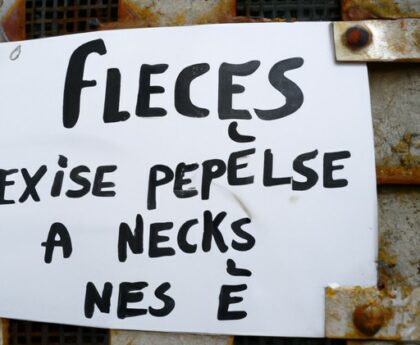 FLECES
EXISE PEPELSE
A NECKS
NES E